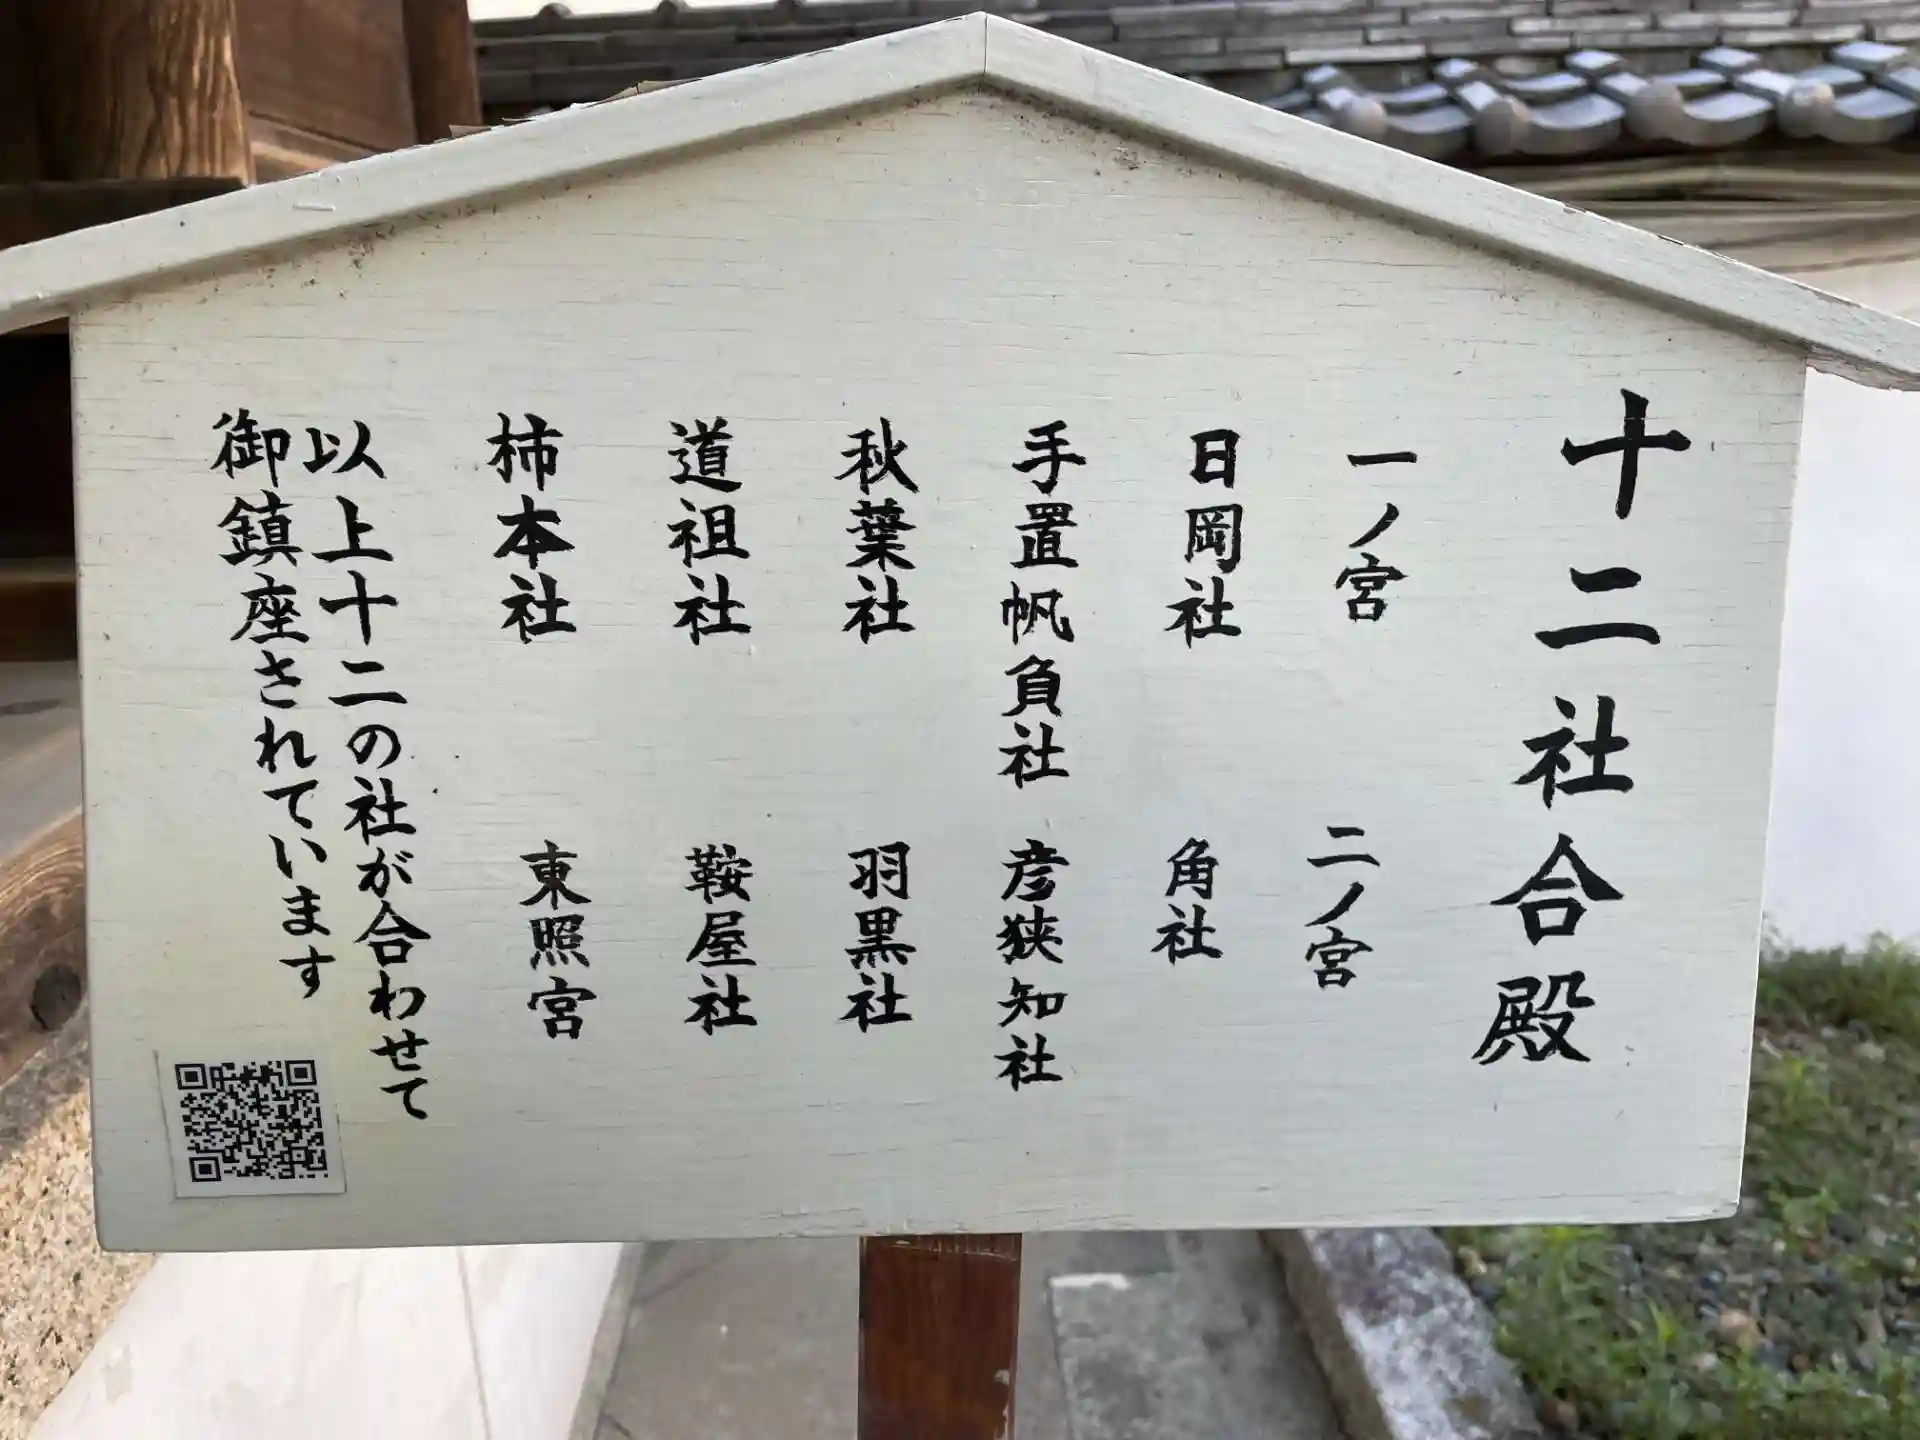 十二社合殿
一ノ宮　二ノ宮
日岡社　角社
手置帆負社　彦狭知社
秋葉社　羽黒社
道祖社　鞍屋社
柿本社　東照宮
以上十二の社が合わせて
御鎮座されています